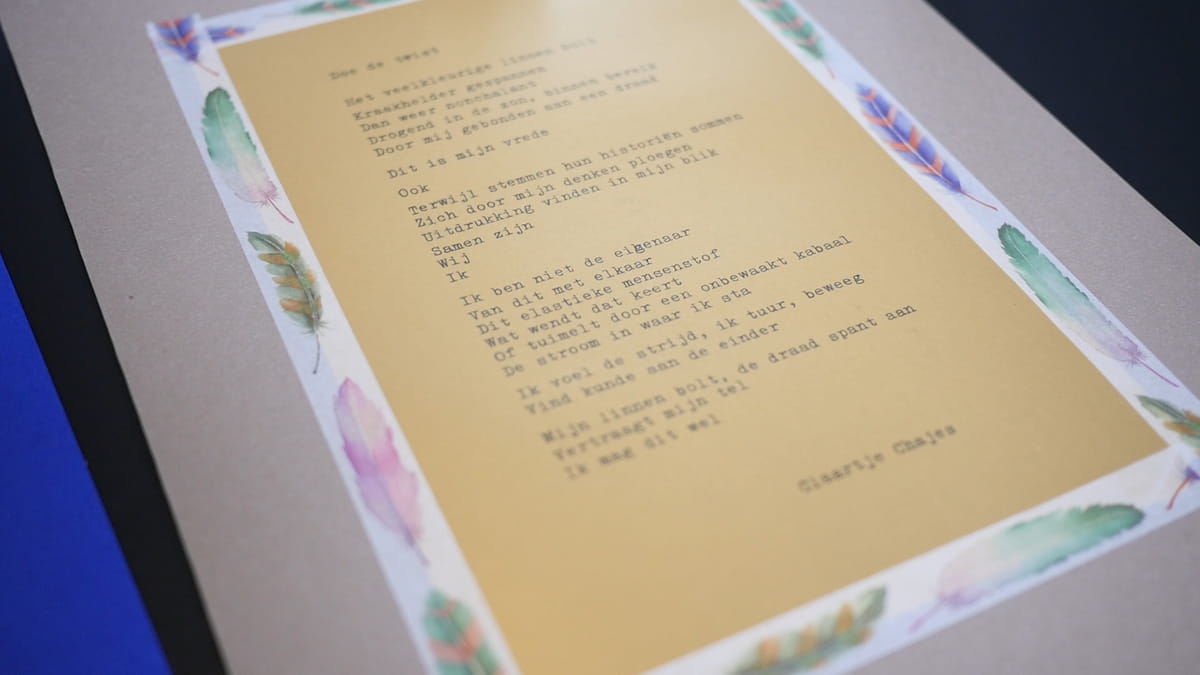 Doe de twist
Het veelkleurige linnen bolt
Kraakhelder gespannen
Dan weer nonchalant
Drogend in de zon, binnen bereik
Door mij gebonden aan een draad
Dit is mijn vrede
Ook
Terwijl stemmen hun historiën sommen
Zich door mijn denken ploegen
Uitdrukking vinden in mijn blik
Samen zijn
Wij
Ik
Ik ben niet de eigenaar
Van dit met elkaar
Dit elastieke mensenstof
Wat wendt dat keert
Of tuimelt door een onbewaakt kabaal
De stroom in waar ik sta
Ik voel de strijd, ik tuur, beweeg
Vind kunde aan de einder
Mijn linnen bolt, de draad spant aan
Vertraagt mijn tel
Ik mag dit wel
Claartje Chajes